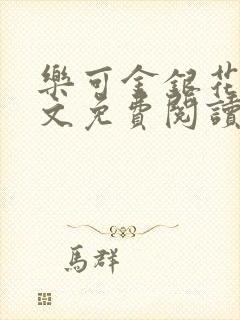 樂可金銀花
文免費閱讀
馬群